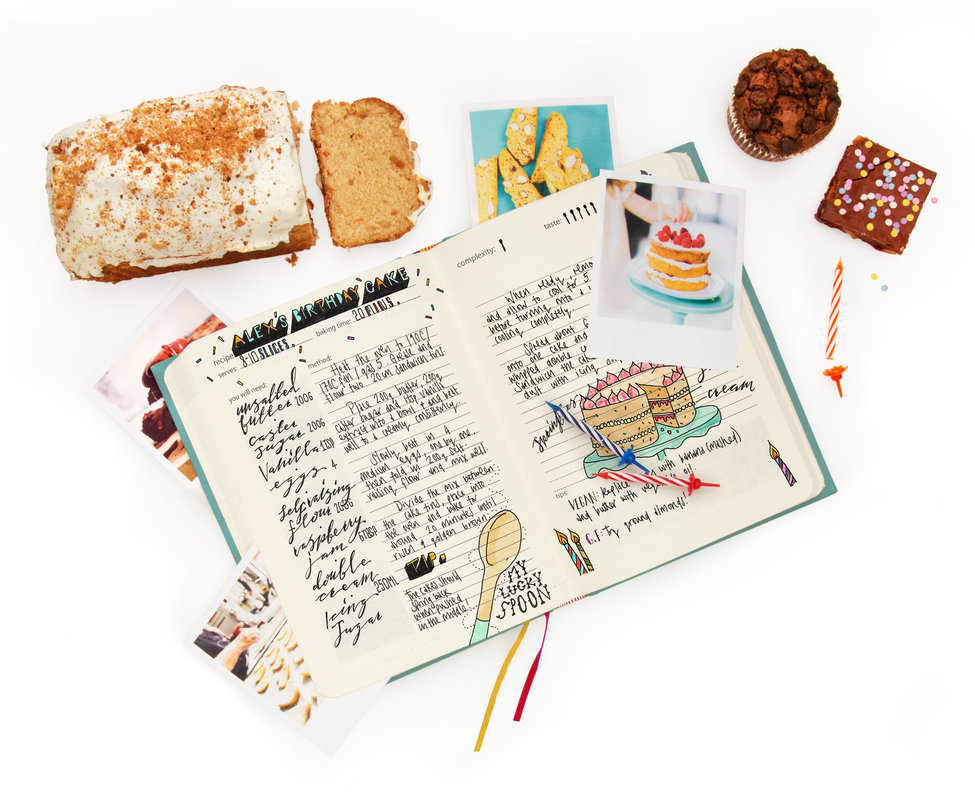 recipe: ALEX'S BIRTHDAY CAKE
serves: 8-10 SLICES.
baking time: 20 MINS.
you will need:
unsalted
butter 200G
caster
sugar 200G
Vanilla 1TSP
eggs 4
self raising
flour 200G
raspberry
jam 6TBSP
double
cream 250ML
Icing
Sugar
method:
Heat the oven to 190C/
170C fan/gas 5. Grease and
flour two 20cm sandwich tins.
Place 200g butter, 200g
caster sugar and the vanilla
extract into a bowl and beat
well to a creamy consistency.
Slowly beat in 4
medium eggs, one by one.
then fold in 200g self
raising flour and mix well.
Divide the mix between
the cake tins, place into
the oven and bake for
around 20 minutes until
risen & golden brown.
TIP:
The cakes should
spring back
when pushed
in the middle
MY
LUCKY
SPOON
complexity:
taste:
When ready, remo
and allow to cool for 5
before turning onto a
cooling completely.
Spread about 6
onto one cake and
whipped double
Sandwich the
dust with icing
cream
tips:
VEGAN: Replace with banana (mashed)
and butter with vegetable oil.
G.F: Try ground almonds!